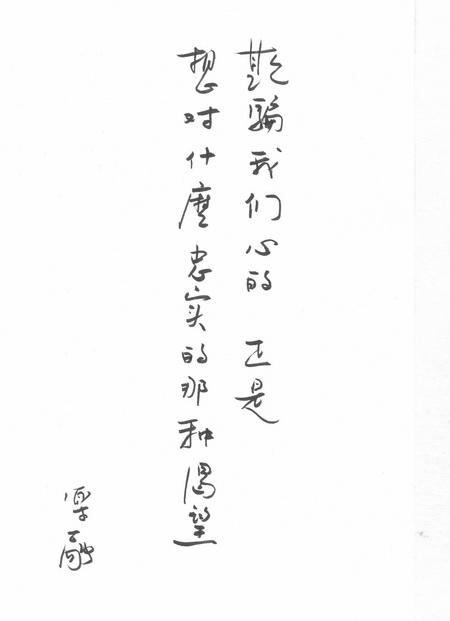 欺骗我们心的 正是
想对什麼忠实的那种渴望